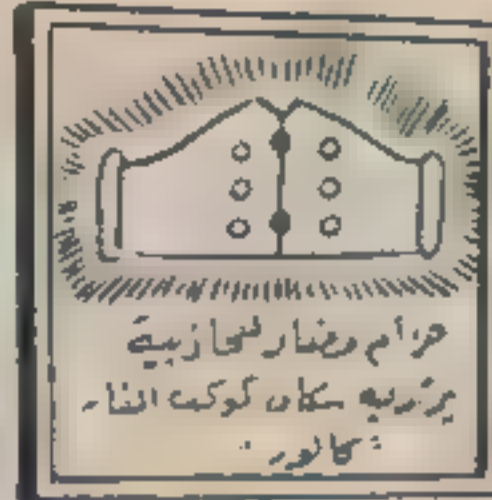 حزام مضاد للجاذبية
يرتديه سكان كوكب النار
" كالور "